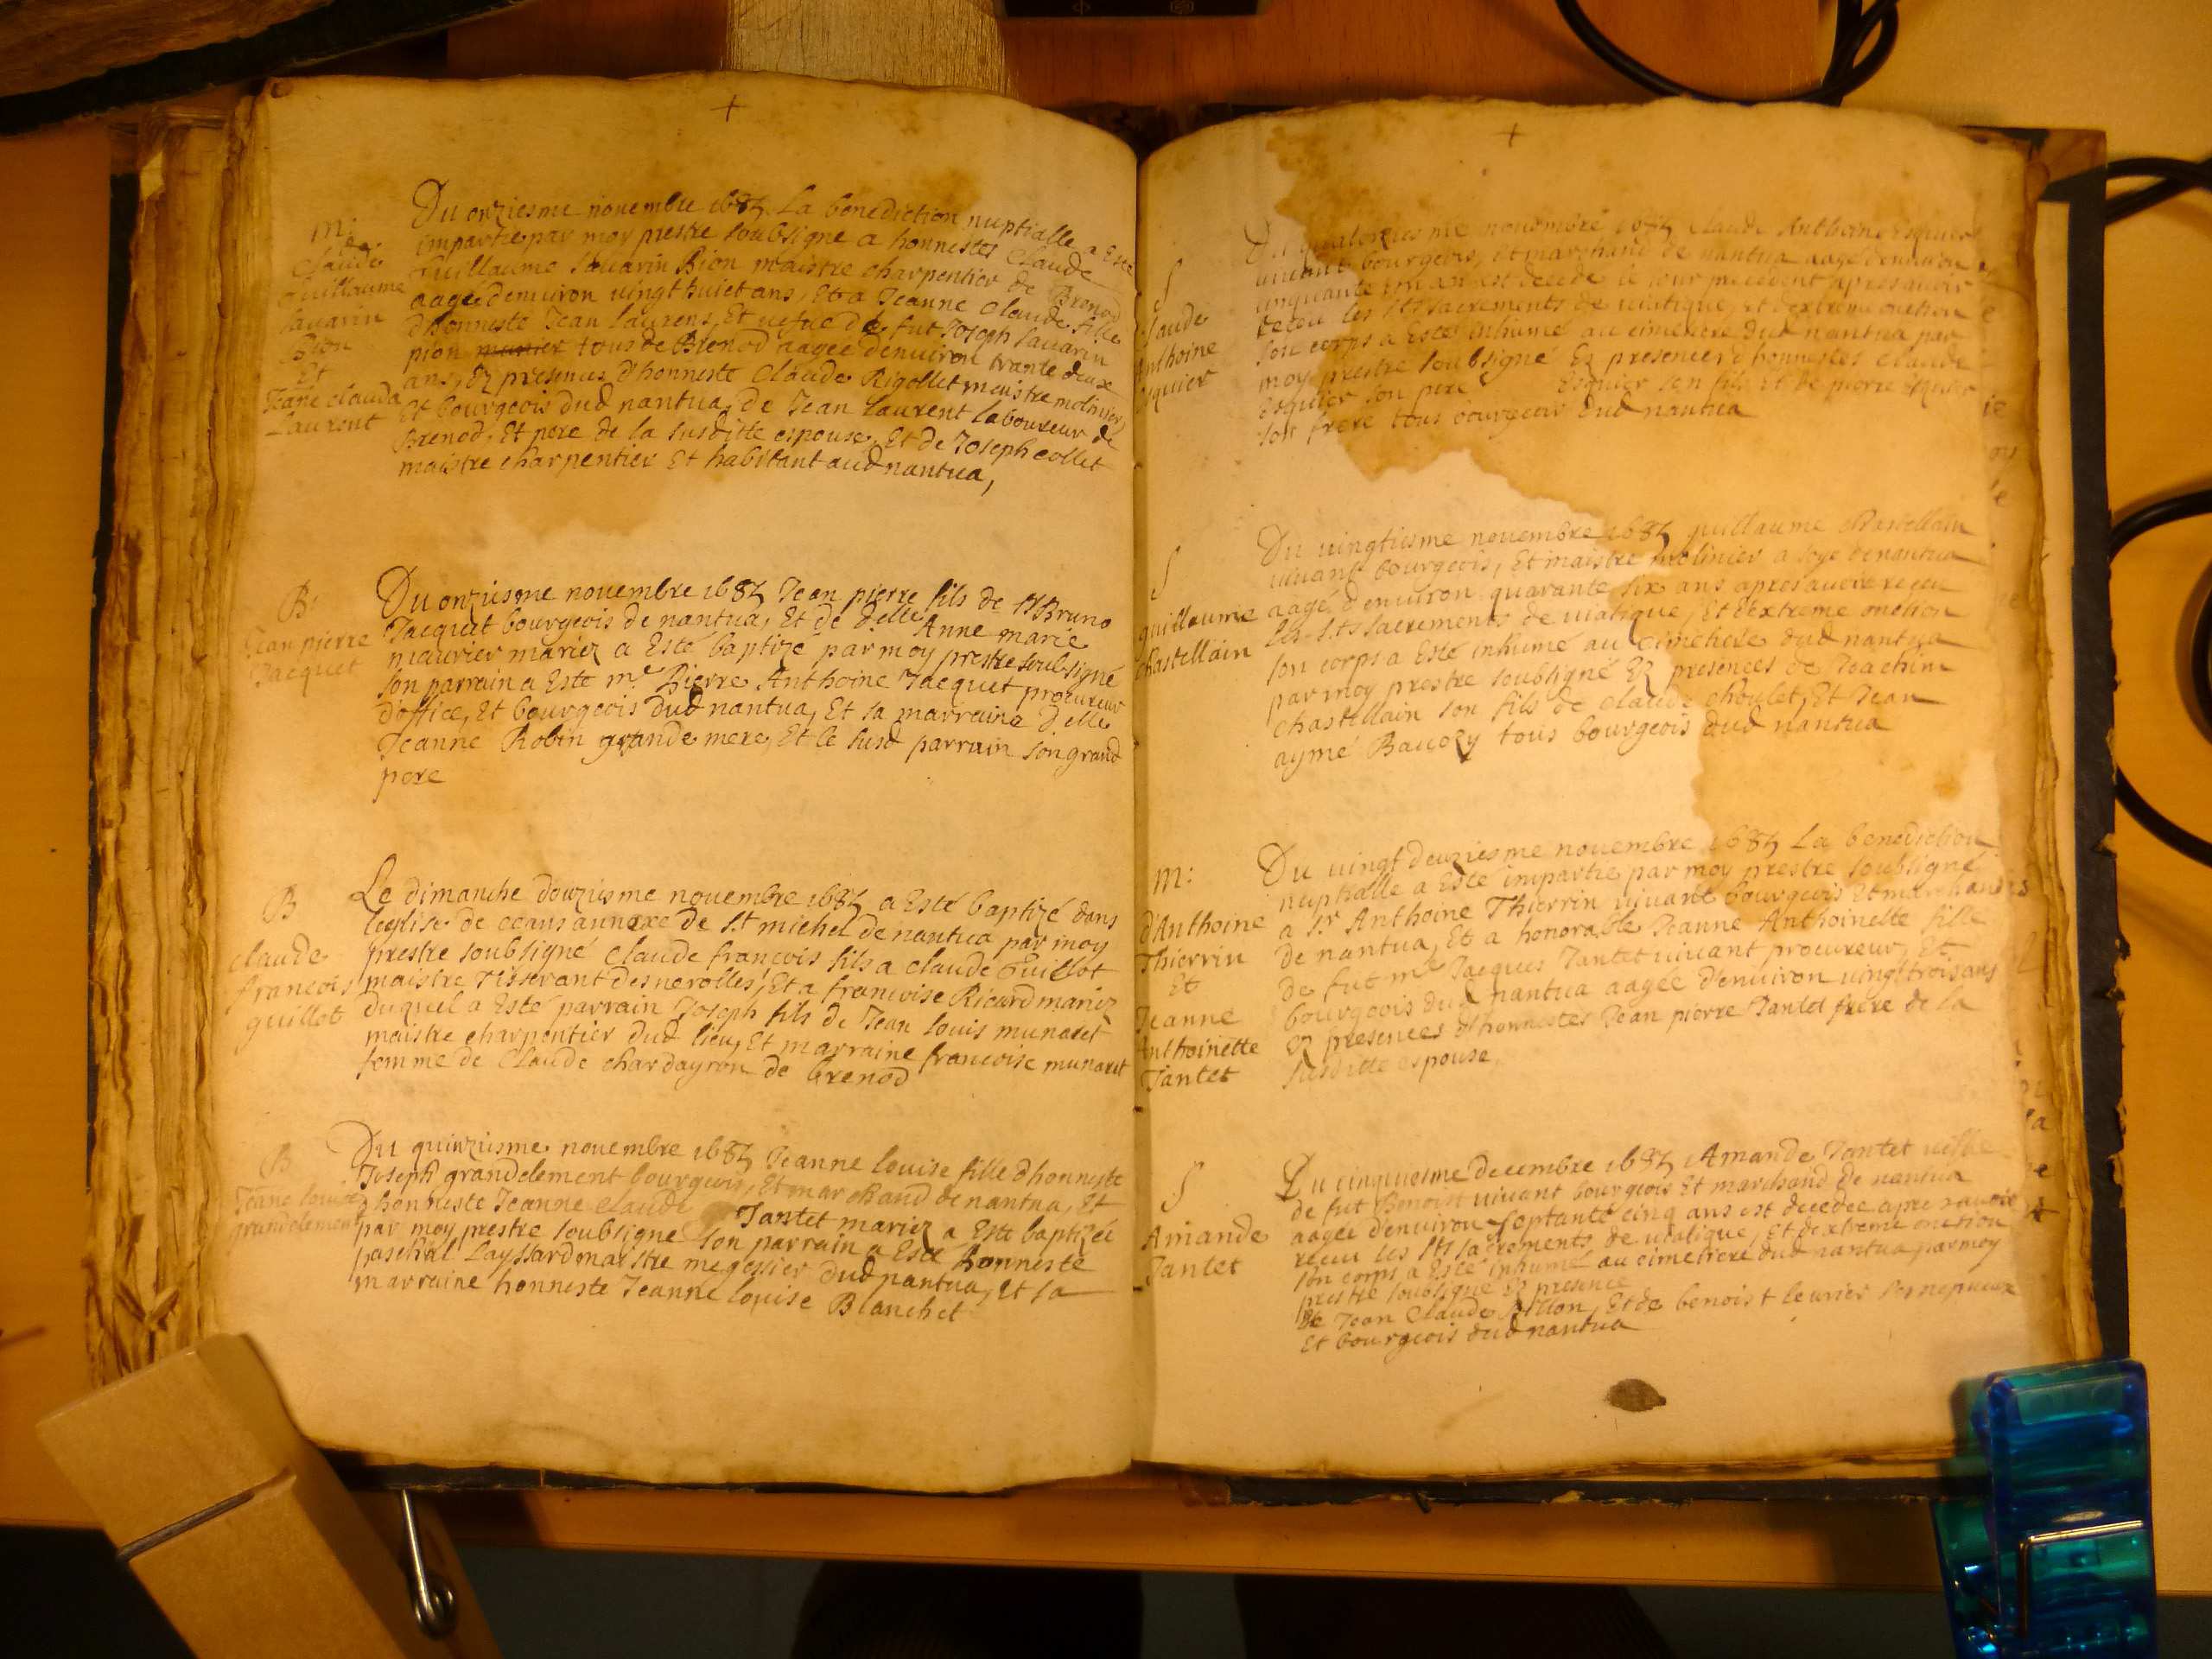 m:
Claude
Guillaume
Sauarin
Bion
Et
Jeane clauda
Laurent
Du onziesme nouembre 1684 La benediction nuptialle a Esté
impartie par moy prestre soubsigné a honnestes Claude
Guillaume Sauarin Bion maistre charpentier de Brenod
aagé denuiron uingt huict ans, Et a Jeanne Claude fille
dhonneste Jean Laurens, Et uefue de fut Joseph Sauarin
pion tous de Brenod aagée denuiron trante deux
ans, Ez presences d'honneste Claude Rigollet maistre molinier,
Et bourgeois dud nantua, de Jean Laurent laboureur de
Brenod, Et pere de la susditte espouse, Et de Joseph collet
maistre charpentier Et habitant aud nantua,
B:
Jean pierre
Jacquet
Du onziesme nouembre 1684 Jean pierre fils de Sr Bruno
Jacquet bourgeois de nantua, Et de delle Anne marie
maurier mariez a Esté baptizé par moy prestre soubsigné
son parrain a Esté me Pierre Anthoine Jacquet procureur
d'office, Et bourgeois dud nantua, Et sa marraine delle
Jeanne Robin grande mere, Et le susd parrain son grand
pere
B
claude
francois
guillot
Le dimanche douziesme nouembre 1684 a Esté baptizé dans
leglise de ceans annexe de St michel de nantua par moy
prestre soubsigné Claude francois fils a Claude Guillot
maistre tisserant des nerolles, Et a francoise Ricard mariez
duquel a Esté parrain Joseph fils de Jean Louis munaret
maistre charpentier dud lieu, Et marraine francoise munaret
femme de Claude chardayron de brenod
B
Jeane louise
grandclement
Du quinziesme nouembre 1684 Jeanne louise fille dhonneste
Joseph grandclement bourgeois, Et marchand de nantua, Et
dhonneste Jeanne Claude Tantet mariez a Esté baptizée
par moy prestre soubsigné son parrain a Esté honneste
paschal Layssard maistre megessier dud nantua, Et sa
marraine honneste Jeanne louise Blanchet
S
Claude
Anthoine
Esquier
Du quatorziesme nouembre 1684 Claude Anthoine Esquier
uiuant bourgeois, Et marchand de nantua aagé denuiron
cinquante un an est decedé le iour precedent apres auoir
receu les Sts sacrements de uiatique, Et dextreme onction
son corps a Esté inhumé au cimetiere dud nantua par
moy prestre soubsigné Ez presences d'honnestes Claude
Esquier son pere Esquier son fils Et de pierre Esquier
son frere tous bourgeois dud nantua
S
guillaume
Chastellain
Du uingtiesme nouembre 1684 guillaume Chastellain
uiuant bourgeois, Et maistre molinier a soye de nantua
aagé denuiron quarante six ans apres auoir receu
les Sts sacrements de uiatique, Et dextreme onction
son corps a Esté inhumé au cimetiere dud nantua
par moy prestre soubsigné Ez presences de Joachim
chastellain son fils de Claude choulet, Et Jean
aymé Baucozy tous bourgeois dud nantua
m:
d'Anthoine
Thierrin
Et
Jeanne
Anthoinette
Tantet
Du uingt deuziesme nouembre 1684 La benediction
nuptialle a Esté impartie par moy prestre soubsigné
a Sr Anthoine Thierrin uiuant bourgeois Et marchand
de nantua, Et a honorable Jeanne Anthoinette fille
de fut me Jacques Tantet uiuant procureur, Et
bourgeois dud nantua aagée denuiron uingt trois ans
Ez presences d'honnestes Jean pierre Tantet frere de la
susditte espouse,
S
Amande
Tantet
Du cinquiesme decembre 1684 Amande Tantet uefue
de fut Benoist uiuant bourgeois Et marchand de nantua
aagée denuiron septante cinq ans est decedée apres auoir
receu les Sts sacrements de uiatique, Et dextreme onction
son corps a Esté inhumé au cimetiere dud nantua par moy
prestre soubsigné Ez presence
de Jean Claude Et de benoist leurier ses nepueux
Et bourgeois dud nantua